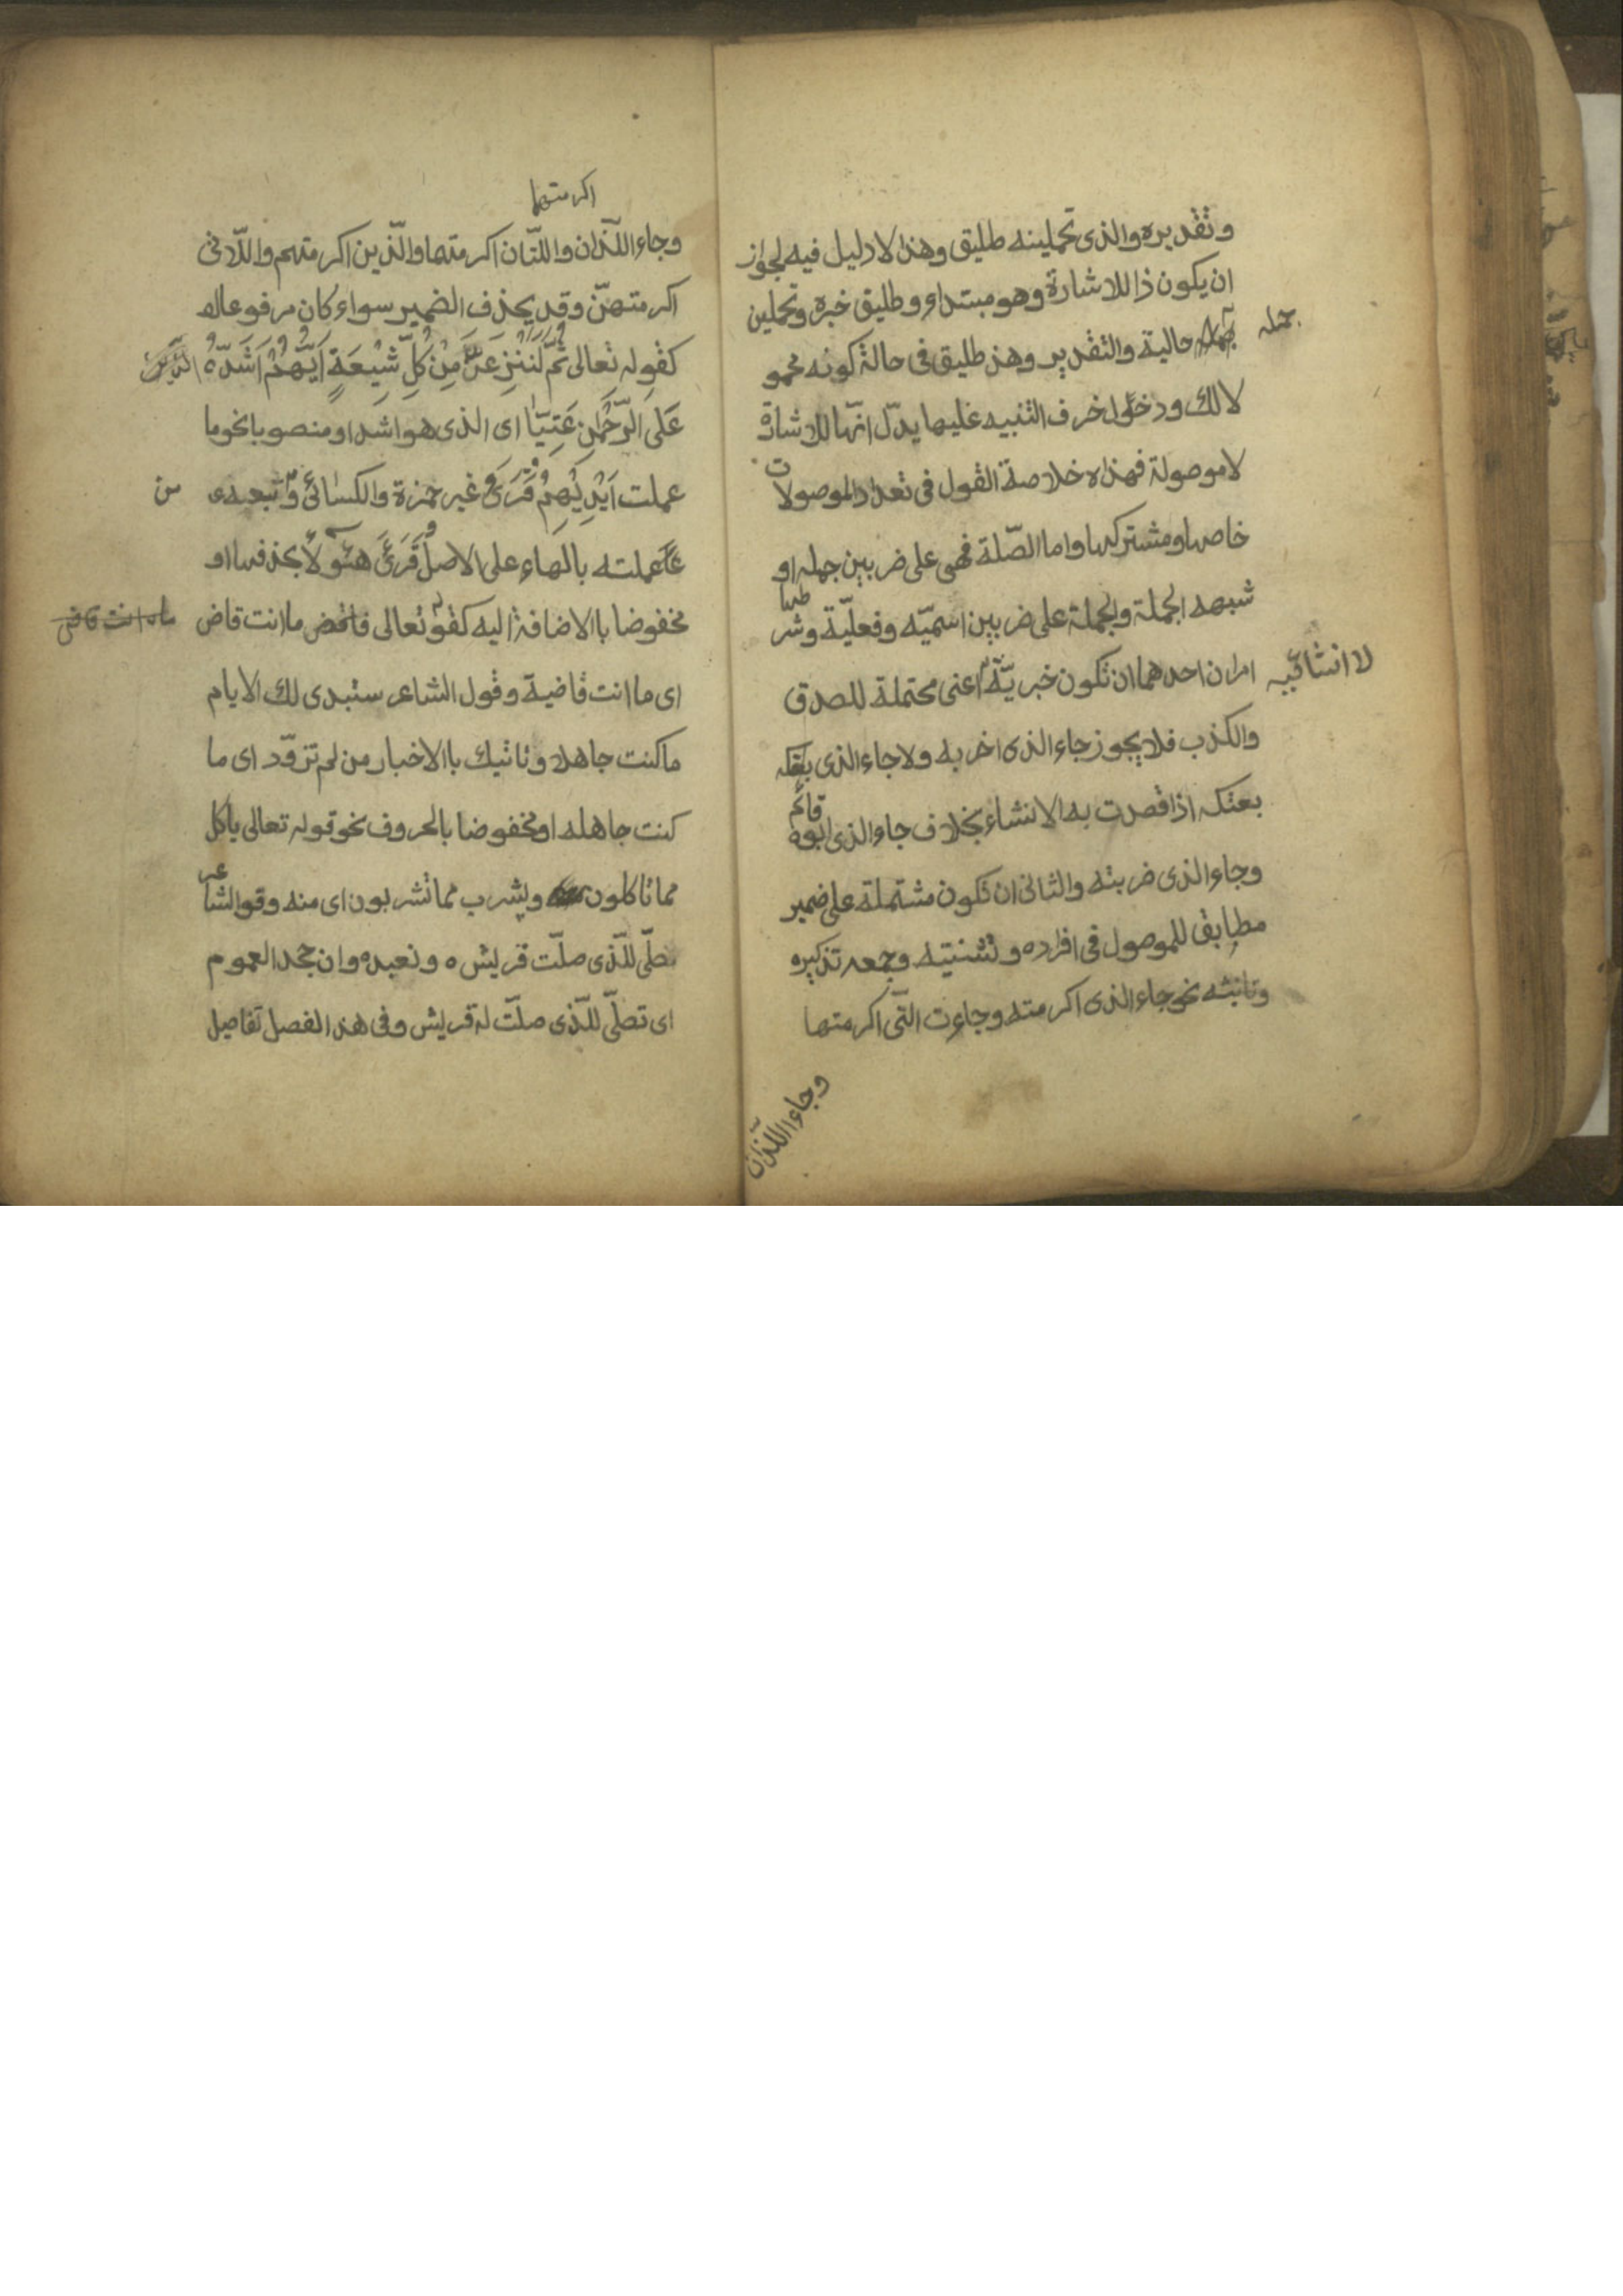 وتقديره والذي تحملينه طليق وهذا لا دليل فيه لجواز
ان يكون ذا للاشارة وهو مبتداء وطليق خبره وتحملين
جمله
حالية والتقدير وهذ طليق فى حالة كونه محمو
لا لك ودخول خرف التنبيه عليها يدل انها للاشارة
لا موصولة فهذاه خلاصة القول فى تعداد الموصولات
خاصها ومشتركها واما الصّلة فهى على ضربين جمله او
شبهه الجملة والجملة على ضربين اسميّه وفعليّة وشرطها
امران احدهما ان تكون خبريّة اعنى محتملة للصدق
لا انشائيّه
والكذب فلا يجوز جاء الذى اضربه ولا جاء الذى بعتكه
بعتكه اذا قصدت به الانشاء بخلاف جاء الذى ابوه قائم
وجاء الذى ضربته والثانى ان تكون مشتملة على ضمير
مطابق للموصول فى افراده وتثنيته وجمعه تذكيره
وتانيثه نحو جاء الذى اكرمته وجاءت التّى اكرمتها
وجاء اللّذان
اكرمتهما
وجاء اللّذان واللتّان اكرمتهما والّذين اكرمتهم واللّاتى
اكرمتهنّ وقد يحذف الضمير سواء كان مرفوعا
كقوله تعالى ثُمّ لَنَنْزِعَنَّ مِنْ كُلِّ شِيْعَةٍ اَيُّهُمْ اَشَدّ
عَلَى الرَّحْمٰنِ عَتِيّاً اى الذى هو اشد او منصوبا نحو ما
عملت اَيْدِيْهِمْ قرىء غير حمزة والكسائى وشعبه
من
عملته بالهاء على الاصل وقرىء هئولاء بحذفها او
مخفوضا باالاضافة اليه كقوله تعالى فاقض ما انت قاض
ما انت قاض
اى ما انت قاضية وقول الشاعر ستبدى لك الايام
ما كنت جاهلا وياتيك باالاخبار من لم تزوّد اى ما
كنت جاهله او مخفوضا بالحروف نحو قوله تعالى ياكل
مما تاكلون ويشرب مما تشربون اى منه وقو الشاعر
نصلّى للّذى صلّت قريش ه ونعبده وان جحد العموم
اى تصلّى للّذى صلّت له قريش وفى هذ الفصل تفاصيل